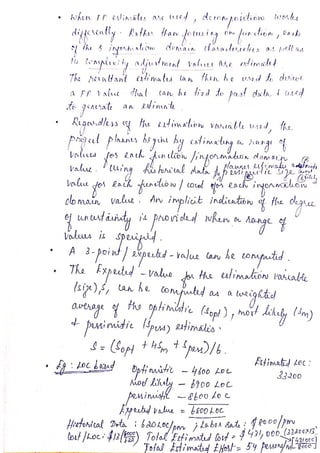 • When FP estimates are used, decomposition works
differently. Rather than focusing on function, each
of the 5 information domain characteristics as well as
the complexity adjustment values are estimated.
The resultant estimates can then be used to derive
a FP value that can be tied to past data & used
to generate an estimate.
• Regardless of the estimation variable used, the
project planner begins by estimating a range of
values for each function / information domain
value. Using historical data planner estimates
pessimistic size
value for each function / count for each information
domain value. An implicit indication of the degree
of uncertainty is provided when a range of
values is specified.
• A 3-point / expected-value can be computed.
• The Expected-value for the estimation variable
(size), S, can be computed as a weighted
average of the optimistic (Sopt), most likely (Sm)
& pessimistic (Spess) estimates.
S = (Sopt + 4Sm + Spess)/6.
• Eg: LOC based
Estimated LOC:
33200
Optimistic — 4600 LOC
Most likely — 6900 LOC
pessimistic — 8600 LOC
Expected value = 6800 LOC
Historical Data : 620 LOC/pm , Labor rate : $8000/pm
Cost/LOC: $13 (8000/620) Total Estimated Cost = $431,000
Total Estimated Effort = 54 person